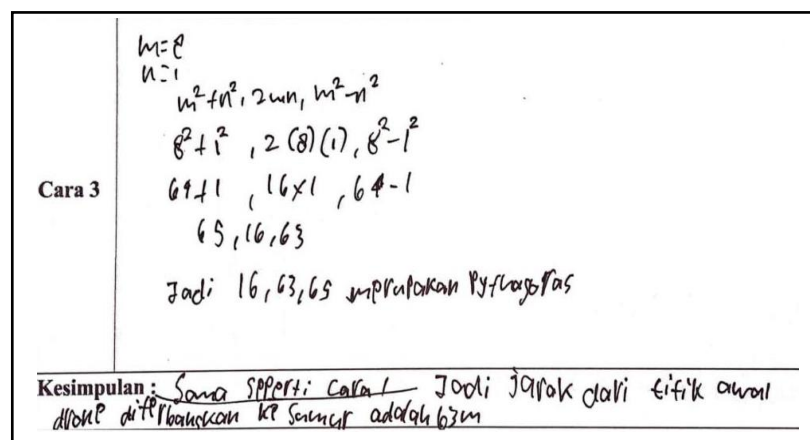 m=8
n=1
m²+n², 2mn, m²-n²
8²+1², 2(8)(1), 8²-1²
Cara 3
64+1, 16×1, 64-1
65, 16, 63
Jadi 16, 63, 65 merupakan Pythagoras
Kesimpulan : Sama seperti cara 1 Jadi jarak dari titik awal
drone diterbangkan ke sumur adalah 63m